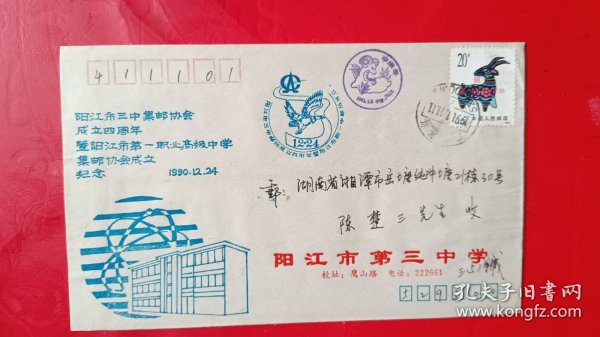 411101
阳江市三中集邮协会
成立四周年
暨阳江市第一职业高级中学
集邮协会成立
纪念 1990.12.24
12·24
20分
中国人民邮政
湖南省湘潭市岳塘纯冲塘21栋30号
陈楚三先生 收
阳江市第三中学
校址：鹰山路 电话：222661
529
孔夫子旧书网
www.kongfz.com